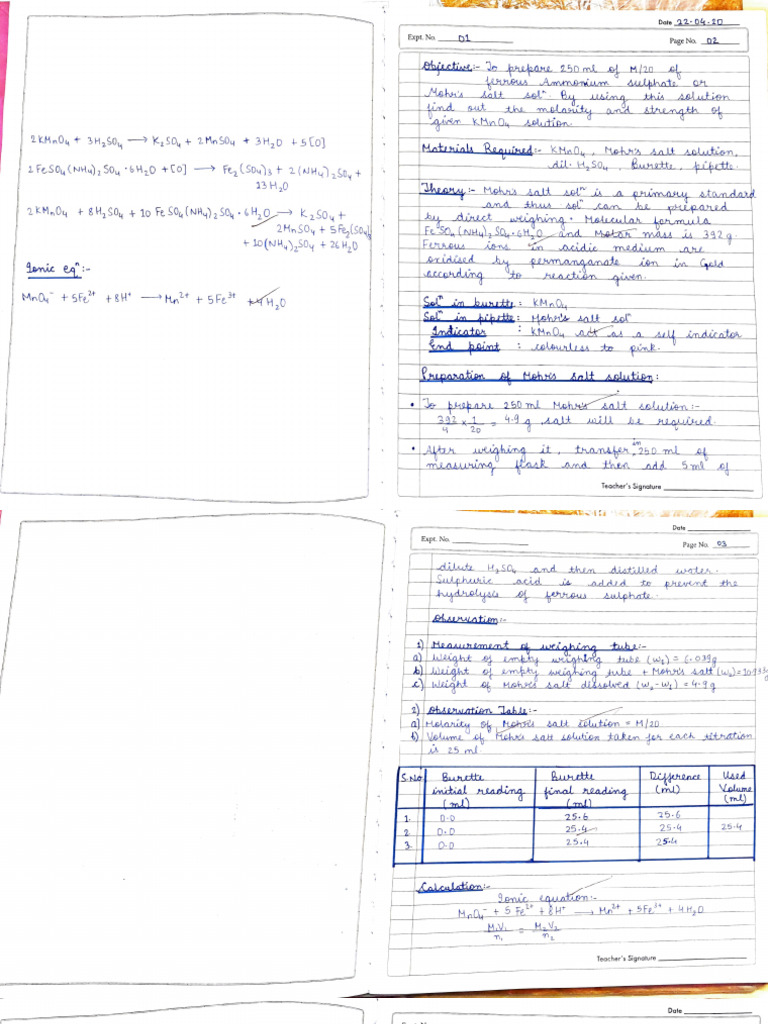 2KMnO₄ + 3H₂SO₄ ⟶ K₂SO₄ + 2MnSO₄ + 3H₂O + 5[O]
2FeSO₄(NH₄)₂SO₄·6H₂O + [O] ⟶ Fe₂(SO₄)₃ + 2(NH₄)₂SO₄ +
13H₂O
2KMnO₄ + 8H₂SO₄ + 10FeSO₄(NH₄)₂SO₄·6H₂O ⟶ K₂SO₄ +
2MnSO₄ + 5Fe₂(SO₄)₃
+ 10(NH₄)₂SO₄ + 26H₂O
Ionic eqⁿ:-
MnO₄⁻ + 5Fe²⁺ + 8H⁺ ⟶ Mn²⁺ + 5Fe³⁺ + 4H₂O
Date 22-04-20
Expt. No. 01 Page No. 02
Objective:- To prepare 250 ml of M/20 of
ferrous Ammonium sulphate or
Mohr's salt solⁿ. By using this solution
find out the molarity and strength of
given KMnO₄ solution.
Materials Required:- KMnO₄, Mohr's salt solution,
dil. H₂SO₄, Burette, pipette.
Theory:- Mohr's salt solⁿ is a primary standard
and thus solⁿ can be prepared
by direct weighing. Molecular formula
FeSO₄(NH₄)₂SO₄·6H₂O and Molar mass is 392g.
Ferrous ions in acidic medium are
oxidised by permanganate ion in Cold
according to reaction given.
Solⁿ in burette : KMnO₄
Solⁿ in pipette : Mohr's salt solⁿ
Indicator : KMnO₄ act as a self indicator
End point : colourless to pink.
Preparation of Mohr's salt solution:
• To prepare 250 ml Mohr's salt solution:-
392/4 × 1/20 = 4.9 g salt will be required.
• After weighing it, transfer in 250 ml of
measuring flask and then add 5 ml of
Teacher's Signature
Date
Expt. No. Page No. 03
dilute H₂SO₄ and then distilled water.
Sulphuric acid is added to prevent the
hydrolysis of ferrous sulphate.
Observation:-
1) Measurement of weighing tube:-
a) Weight of empty weighing tube (w₁) = 6.039g
b) Weight of empty weighing tube + Mohr's salt (w₂) = 10.939g
c) Weight of Mohr's salt dissolved (w₂-w₁) = 4.9 g
2) Observation Table:-
a) Molarity of Mohr's salt solution = M/20
b) Volume of Mohr's salt solution taken for each titration
is 25 ml.
S.No Burette initial reading (ml) Burette final reading (ml) Difference (ml) Used Volume (ml)
1. 0.0 25.6 25.6
2. 0.0 25.4 25.4 25.4
3. 0.0 25.4 25.4
Calculation:-
Ionic equation:-
MnO₄⁻ + 5Fe²⁺ + 8H⁺ ⟶ Mn²⁺ + 5Fe³⁺ + 4H₂O
M₁V₁/n₁ = M₂V₂/n₂
Teacher's Signature
Date